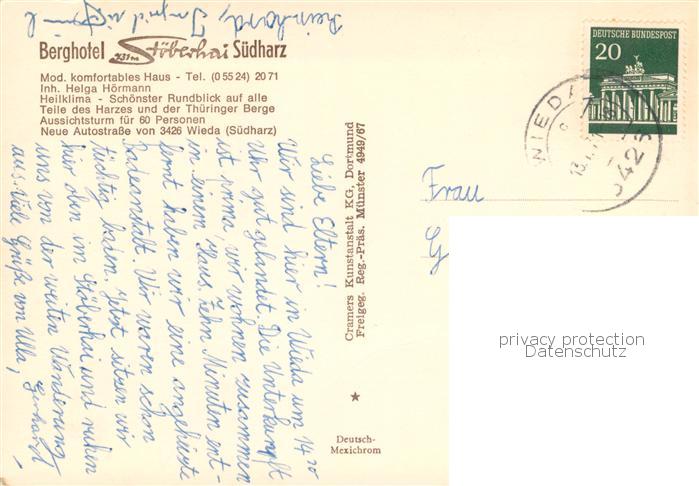 Berghotel Stöberhai Südharz
731m
Mod. komfortables Haus - Tel. (0 55 24) 20 71
Inh. Helga Hörmann
Heilklima - Schönster Rundblick auf alle
Teile des Harzes und der Thüringer Berge
Aussichtsturm für 60 Personen
Neue Autostraße von 3426 Wieda (Südharz)
Liebe Eltern!
Wir sind hier in Wieda um 14 20
Uhr gut gelandet. Die Unterkunft
ist prima, wir wohnen zusammen
in einem Haus. Zehn Minuten ent-
fernt haben wir eine angeheizte
Badeanstalt. Wir waren schon
tüchtig baden. Jetzt sitzen wir
hier oben im Stöberhai und ruhen
uns von der weiten Wanderung
aus. Viele Grüße von Ulla, Gerhard,
Reinhard, Ingrid u.
Cramers Kunstanstalt KG, Dortmund
Freigeg. Reg.-Präs. Münster 4949/67
Deutsch-
Mexichrom
DEUTSCHE BUNDESPOST
20
WIEDA
Frau
G
privacy protection
Datenschutz